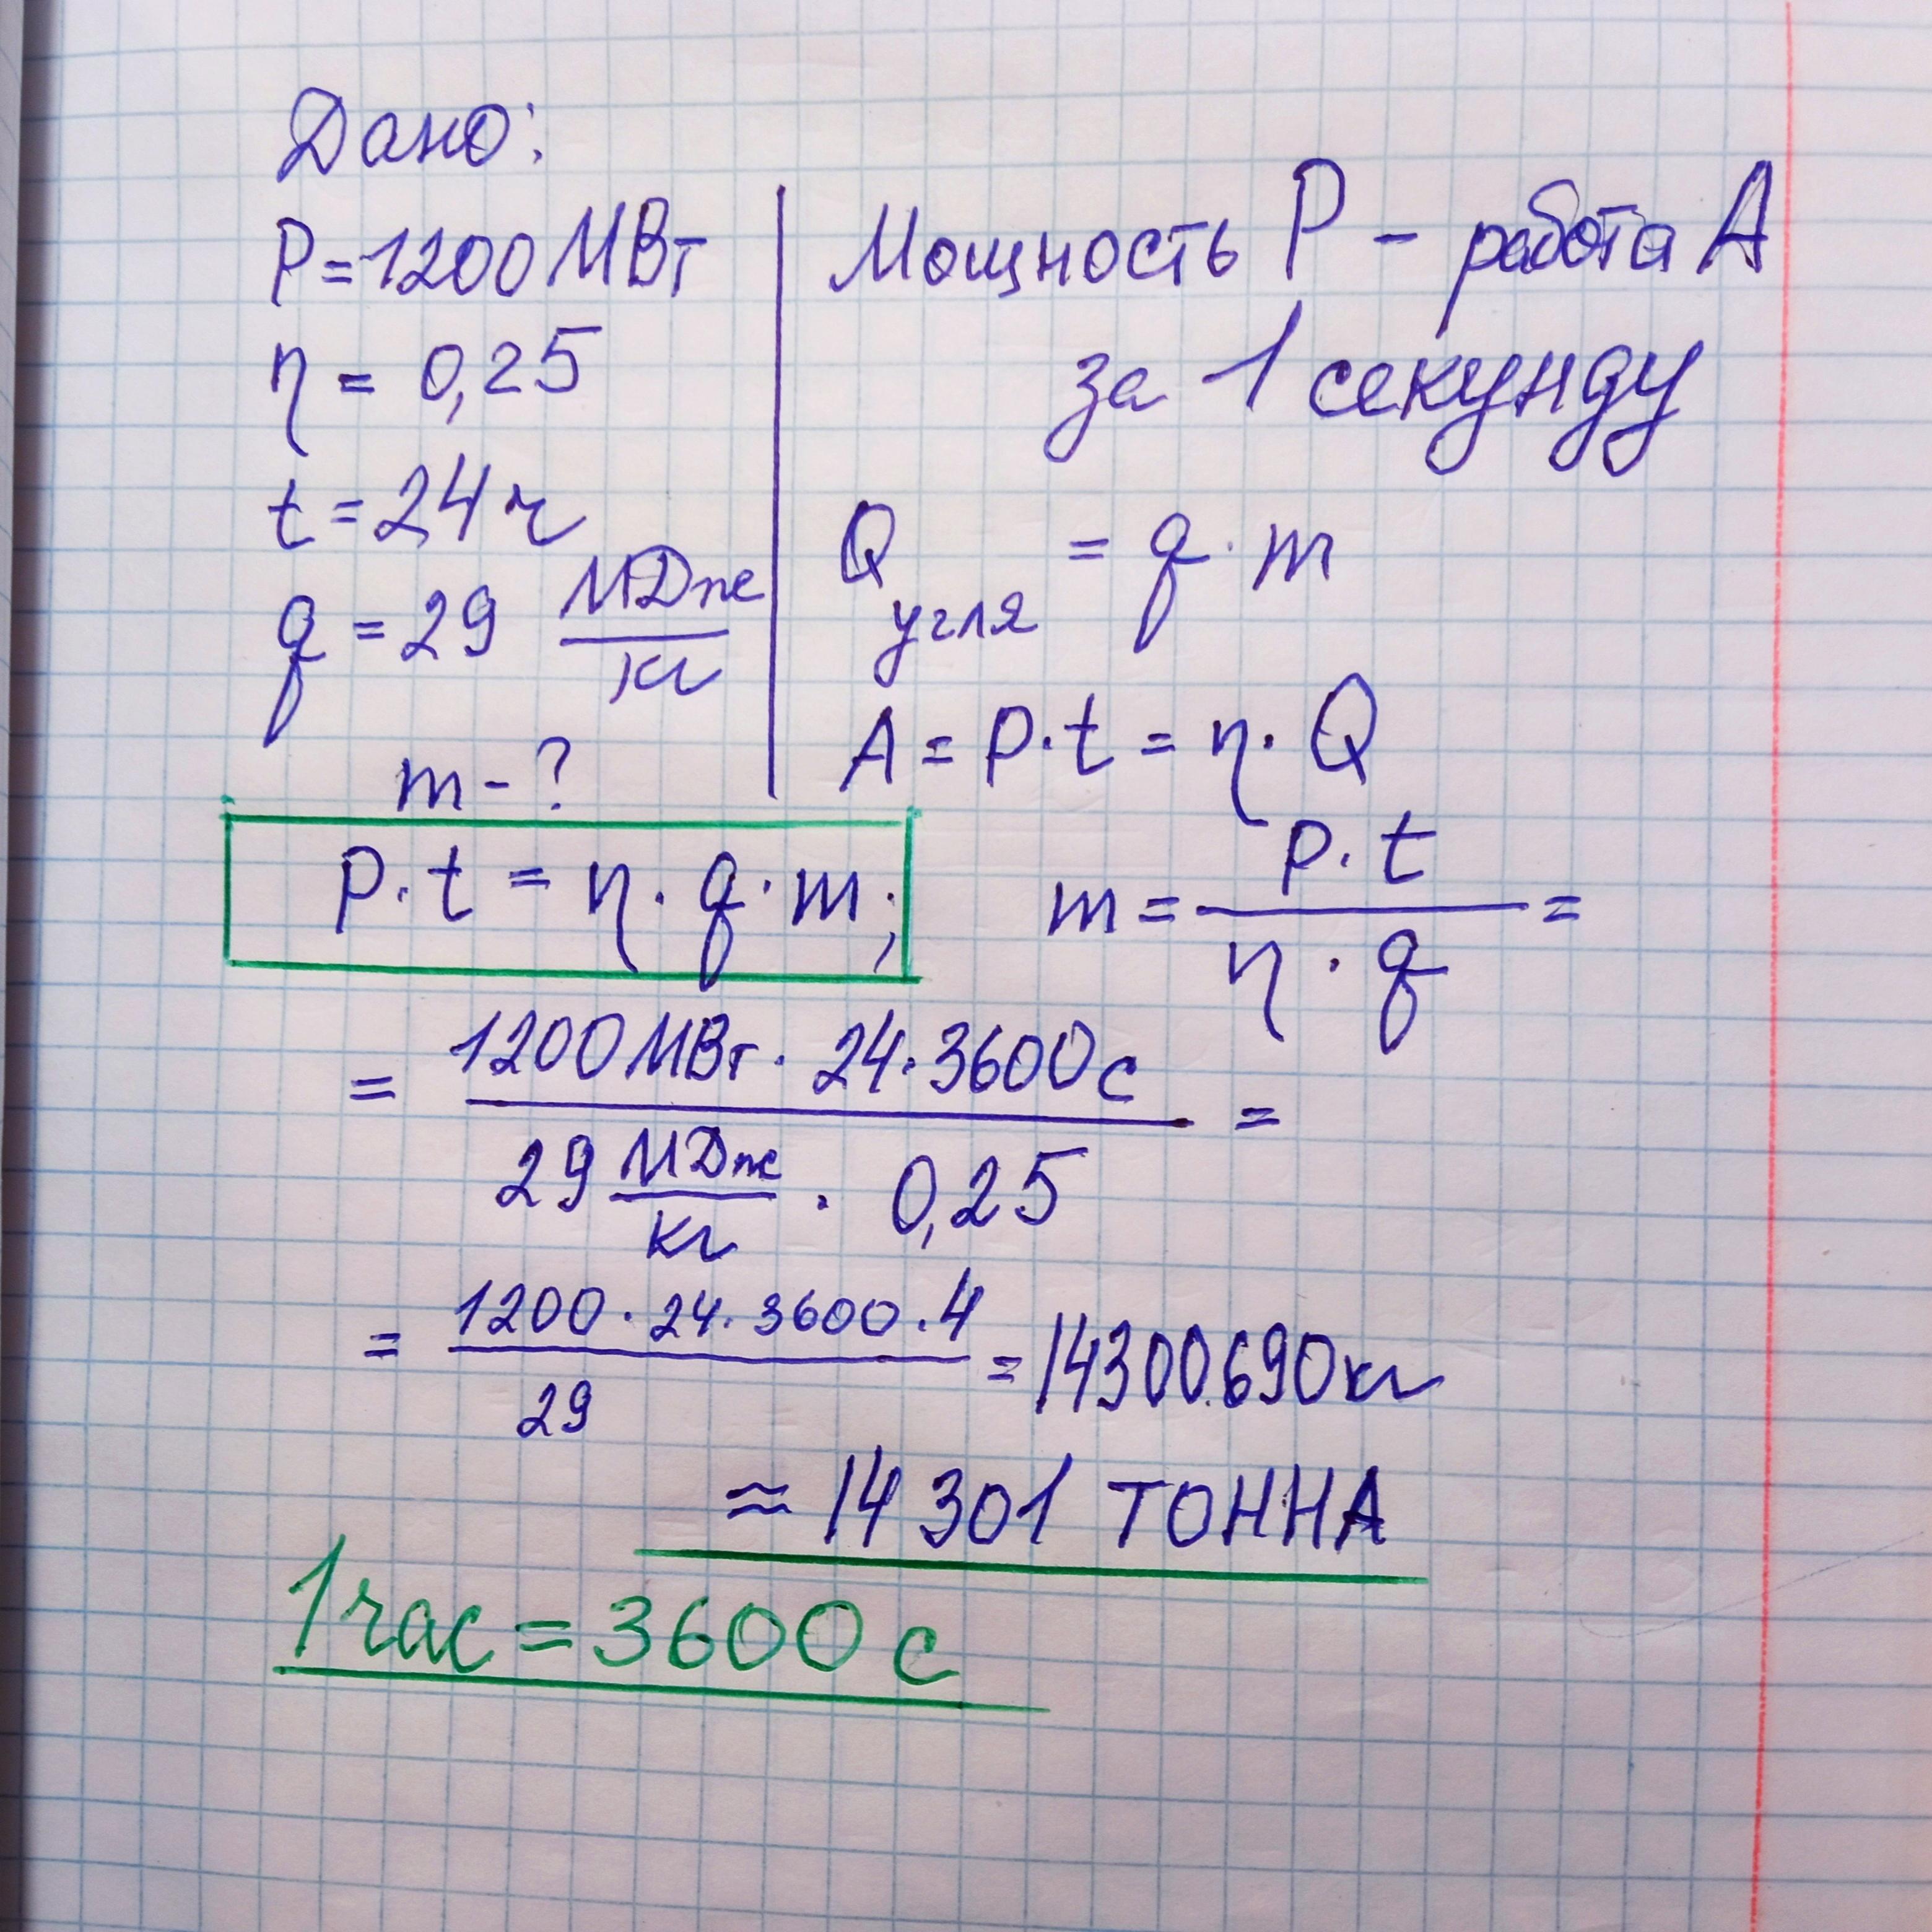 Дано:
P=1200МВт
η = 0,25
t = 24 ч
q = 29 МДж/кг
m - ?
Мощность P – работа A
за 1 секунду
Q угля = q · m
A = P · t = η · Q
P · t = η · q · m;
m = P · t / η · q =
= 1200МВт · 24 · 3600с / 29 МДж/кг · 0,25 =
= 1200 · 24 · 3600 · 4 / 29 = 14300690кг
≈ 14 301 ТОННА
1час = 3600 с